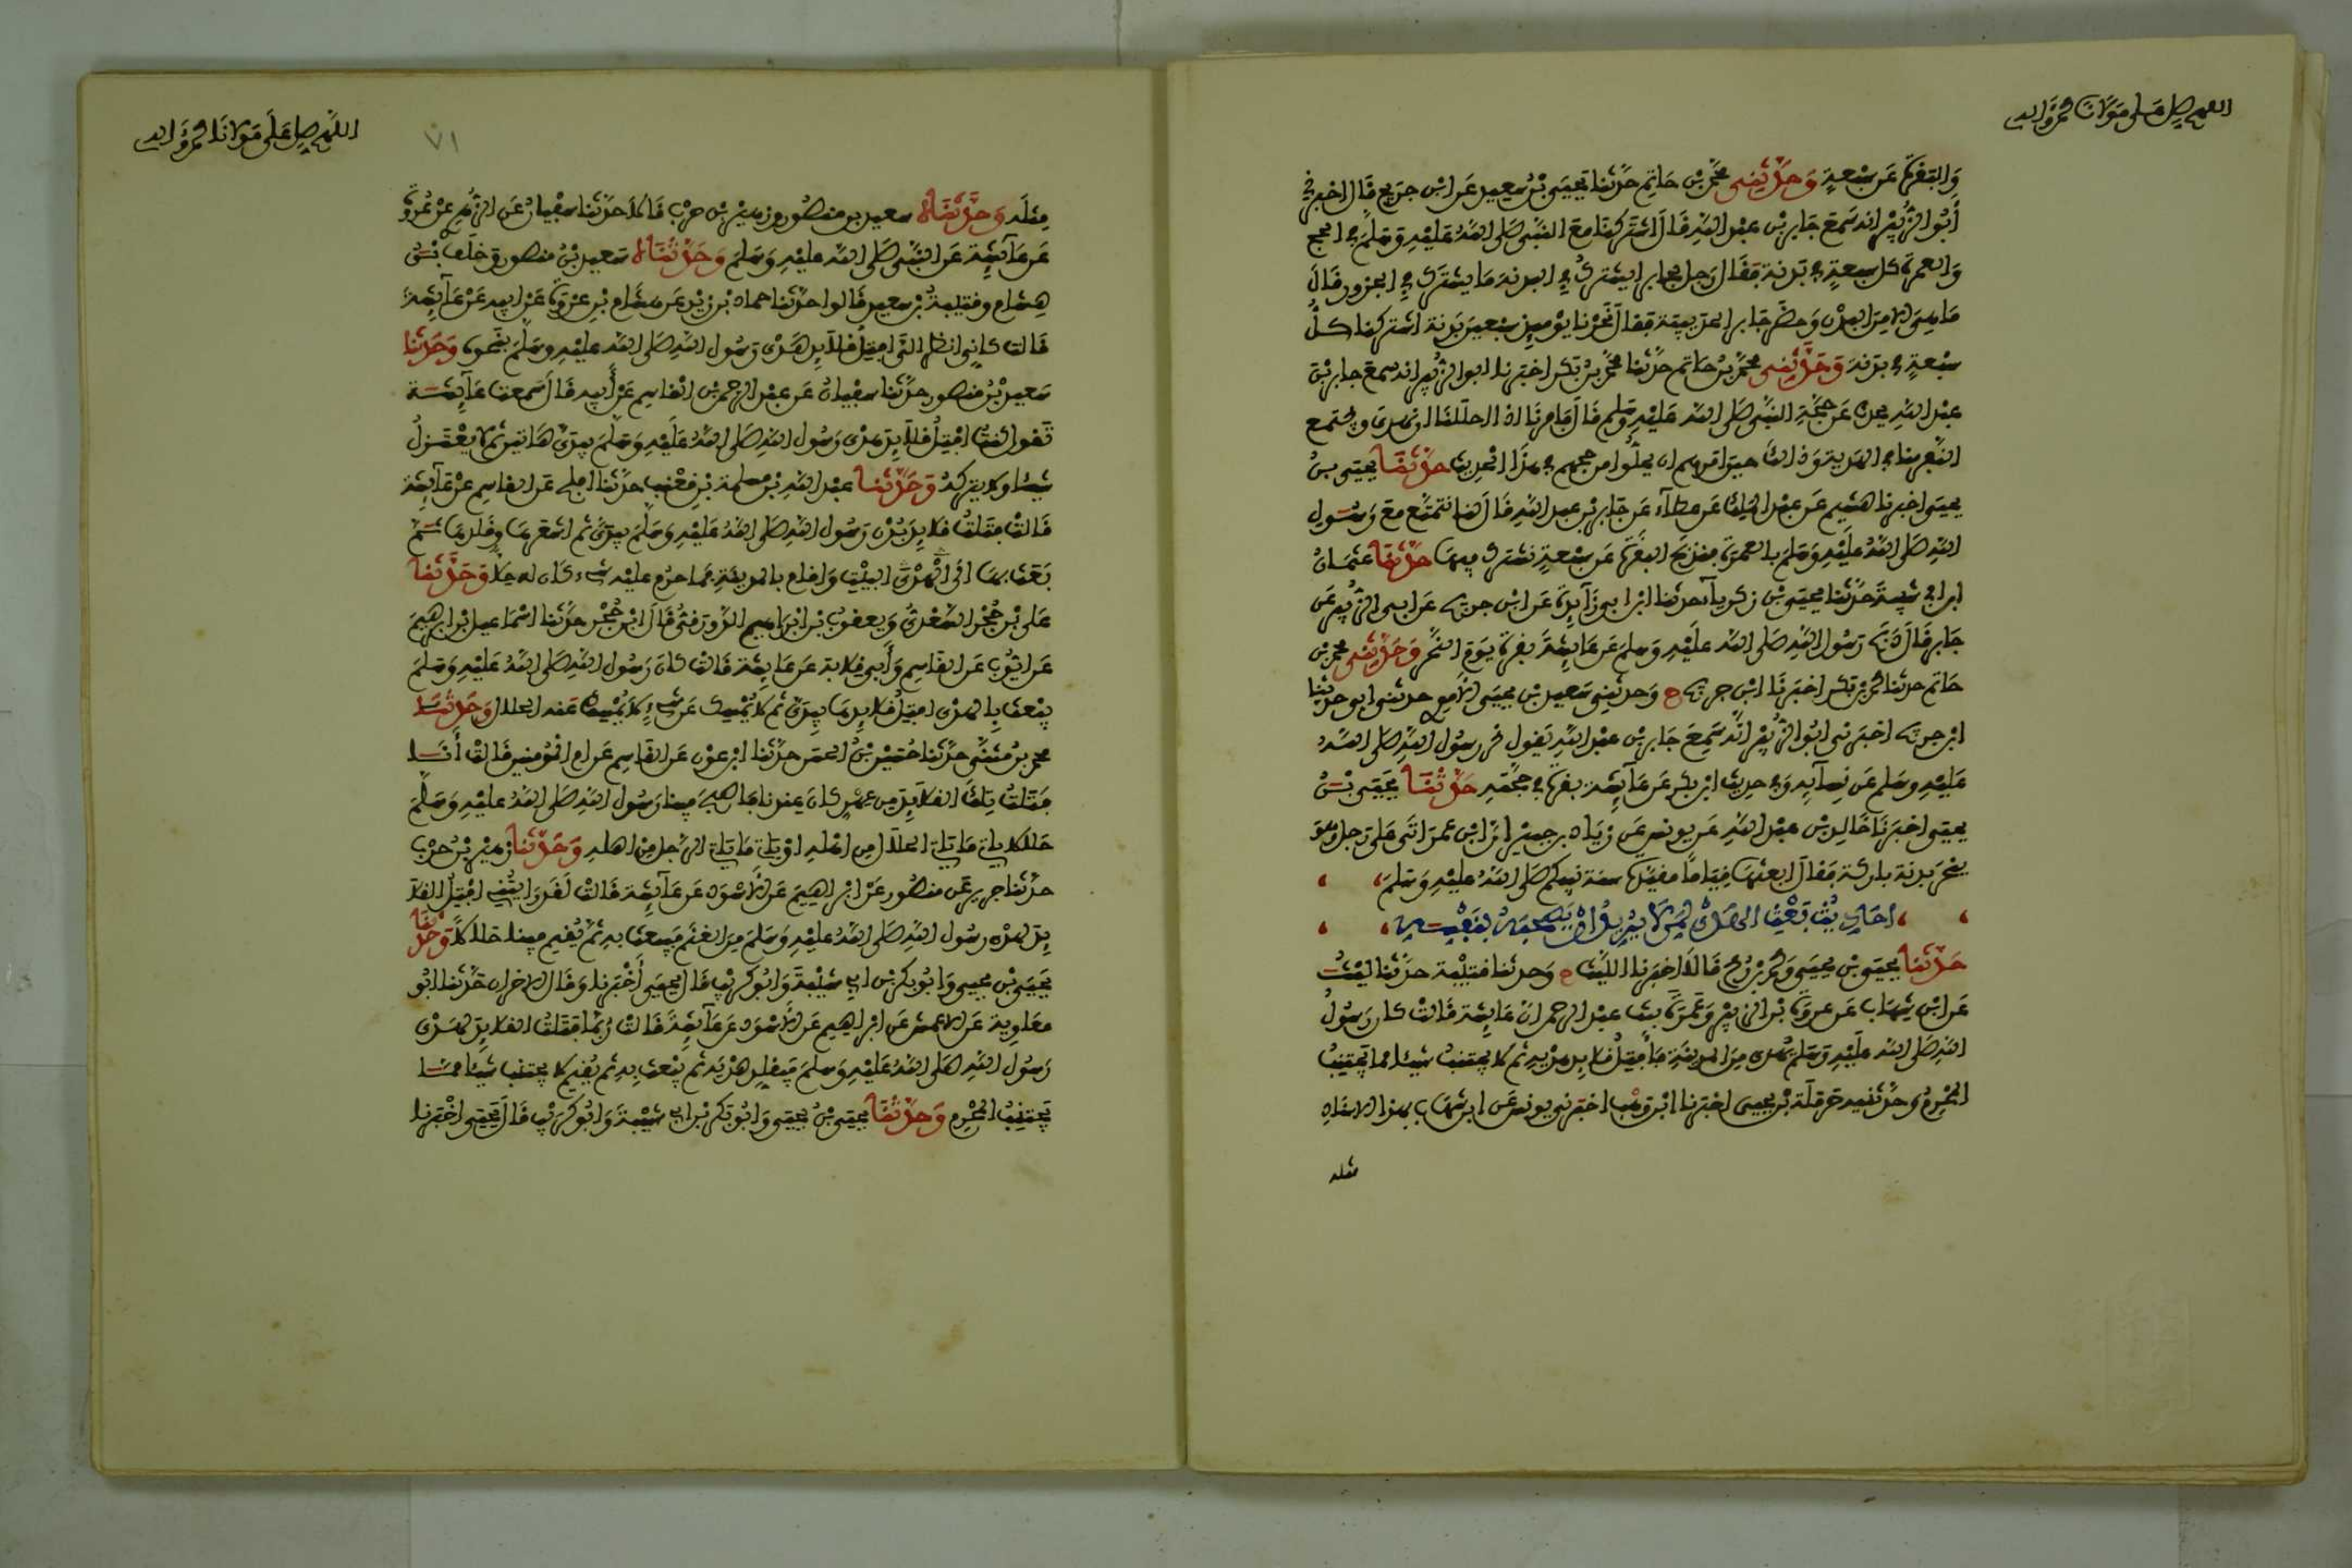 اللهم صل على مولانا محمد وآله
والبقرة عن سبعة وحدثني محمد بن حاتم حدثنا يحيى بن سعيد عن ابن جريج قال اخبرني
أبو الزبير انه سمع جابر بن عبد الله قال اشتركنا مع النبي صلى الله عليه وسلم في الحج
والعمرة كل سبعة في بدنة فقال رجل لجابر ايشترك في البدنة ما يشترك في الجزور قال
ما هي الا من البدن وحضر جابر الحديبية فقال نحرنا يومئذ سبعين بدنة اشتركنا كل
سبعة في بدنة وحدثني محمد بن حاتم حدثنا محمد بن بكر اخبرنا ابو الزبير انه سمع جابر بن
عبد الله يحدث عن حجة النبي صلى الله عليه وسلم قال فأمرنا اذا احللنا ان نهدي ويجتمع
النفر منا في الهدية وذلك حين امرهم ان يحلوا من حجهم في هذا الحديث حدثنا يحيى بن
يحيى اخبرنا هشيم عن عبد الملك عن عطاء عن جابر بن عبد الله قال كنا نتمتع مع رسول
الله صلى الله عليه وسلم بالعمرة فنذبح البقرة عن سبعة نشترك فيها حدثنا عثمان
ابن ابي شيبة حدثنا يحيى بن زكرياء حدثنا ابن ابي زائدة عن ابن جريج عن ابي الزبير عن
جابر قال ذبح رسول الله صلى الله عليه وسلم عن عائشة بقرة يوم النحر وحدثني محمد بن
حاتم حدثنا محمد بن بكر اخبرنا ابن جريج ح وحدثني سعيد بن يحيى الاموي حدثني ابي حدثنا
ابن جريج اخبرني ابو الزبير انه سمع جابر بن عبد الله يقول نحر رسول الله صلى الله
عليه وسلم عن نسائه وفي حديث ابن بكر عن عائشة بقرة في حجته حدثنا يحيى بن
يحيى اخبرنا خالد بن عبد الله عن يونس عن زياد بن جبير ان ابن عمر اتى على رجل وهو
ينحر بدنة باركة فقال ابعثها قياما مقيدة سنة نبيكم صلى الله عليه وسلم
احاديث بعث الهدي لمن لا يريد الذهاب بنفسه
حدثنا يحيى بن يحيى ومحمد بن رمح قالا اخبرنا الليث ح وحدثنا قتيبة حدثنا ليث
عن ابن شهاب عن عروة بن الزبير وعمرة بنت عبد الرحمن ان عائشة قالت كان رسول
الله صلى الله عليه وسلم يهدي من المدينة فأفتل قلائد هديه ثم لا يجتنب شيئا مما يجتنب
المحرم وحدثنيه حرملة بن يحيى اخبرنا ابن وهب اخبرني يونس عن ابن شهاب بهذا الاسناد
مثله
اللهم صل على مولانا محمد وآله
٧١
مثله وحدثناه سعيد بن منصور وزهير بن حرب قالا حدثنا سفيان عن الزهري عن عروة
عن عائشة عن النبي صلى الله عليه وسلم وحدثناه سعيد بن منصور وخلف بن
هشام وقتيبة بن سعيد قالوا حدثنا حماد بن زيد عن هشام بن عروة عن ابيه عن عائشة
قالت كاني انظر الي افتل قلائد هدي رسول الله صلى الله عليه وسلم بنحوه وحدثنا
سعيد بن منصور حدثنا سفيان عن عبد الرحمن بن القاسم عن أبيه قال سمعت عائشة
تقول كنت افتل قلائد هدي رسول الله صلى الله عليه وسلم بيدي هاتين ثم لا يعتزل
شيئا ولا يتركه وحدثنا عبد الله بن مسلمة بن قعنب حدثنا افلح عن القاسم عن عائشة
قالت فتلت قلائد بدن رسول الله صلى الله عليه وسلم بيدي ثم اشعرها وقلدها ثم
بعث بها الى البيت واقام بالمدينة فما حرم عليه شيء كان له حلا وحدثنا
علي بن حجر السعدي ويعقوب بن ابراهيم الدورقي قال ابن حجر حدثنا اسماعيل بن ابراهيم
عن ايوب عن القاسم وأبي قلابة عن عائشة قالت كان رسول الله صلى الله عليه وسلم
يبعث بالهدي افتل قلائدها بيدي ثم لا يمسك عن شيء لا يمسك عنه الحلال وحدثنا
محمد بن مثنى حدثنا حسين بن الحسن حدثنا ابن عون عن القاسم عن ام المومنين قالت أنا
فتلت تلك القلائد من عهن كان عندنا فاصبح فينا رسول الله صلى الله عليه وسلم
حلالا ياتي ما ياتي الحلال من اهله او ياتي ما ياتي الرجل من اهله وحدثنا زهير بن حرب
حدثنا جرير عن منصور عن ابراهيم عن الاسود عن عائشة قالت لقد رايتني افتل القلا
ئد لهدي رسول الله صلى الله عليه وسلم من الغنم فيبعث به ثم يقيم فينا حلالا وحدثنا
يحيى بن يحيى وابو بكر بن ابي شيبة وابو كريب قال يحيى أخبرنا وقال الاخران حدثنا ابو
معاوية عن الاعمش عن ابراهيم عن الاسود عن عائشة قالت ربما فتلت القلائد لهدي
رسول الله صلى الله عليه وسلم فيقلد هديه ثم يبعث به ثم يقيم لا يجتنب شيئا مما
يجتنب المحرم وحدثنا يحيى بن يحيى وابو بكر بن ابي شيبة وابو كريب قال يحيى اخبرنا